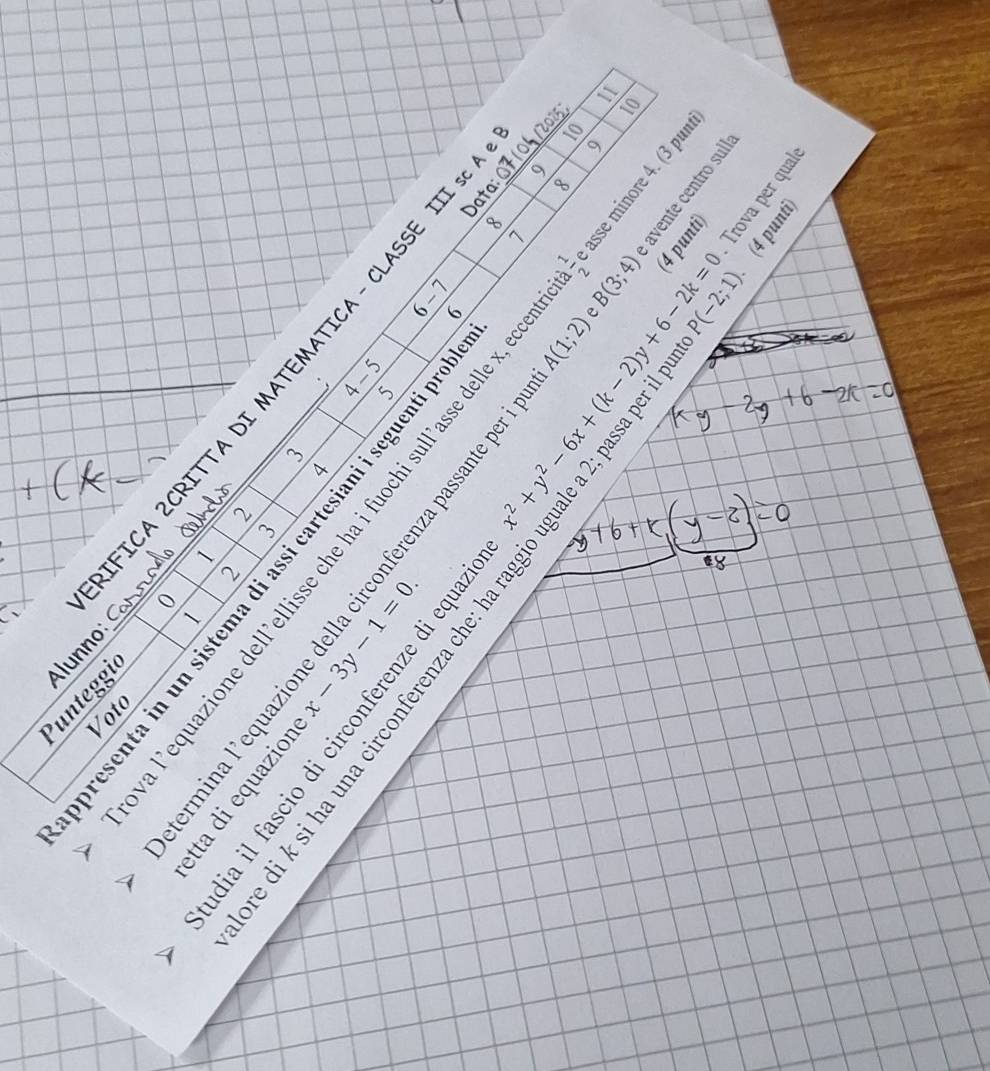 VERIFICA 2CRITTA DI MATEMATICA - CLASSE III sc A e B
Alunno: Data: 07/04/2025;
Punteggio 0 1 2 3 4 – 5 6 – 7 8 9 10 11
Voto 1 2 3 4 5 6 7 8 9 10
Rappresenta in un sistema di assi cartesiani i seguenti problemi.
➢ Trova l'equazione dell'ellisse che ha i fuochi sull'asse delle x, eccentricità 1/2 e asse minore 4. (3 punti)
➢ Determina l'equazione della circonferenza passante per i punti A(1; 2) e B(3; 4) e avente centro sulla
retta di equazione x − 3y − 1 = 0. (4 punti)
➢ Studia il fascio di circonferenze di equazione x² + y² − 6x + (k − 2)y + 6 − 2k = 0. Trova per quale
valore di k si ha una circonferenza che: ha raggio uguale a 2; passa per il punto P(−2; 1). (4 punti)
+ (k −
ky − 2y + 6 − 2k = 0
y + 6 + k(y − 2) = 0